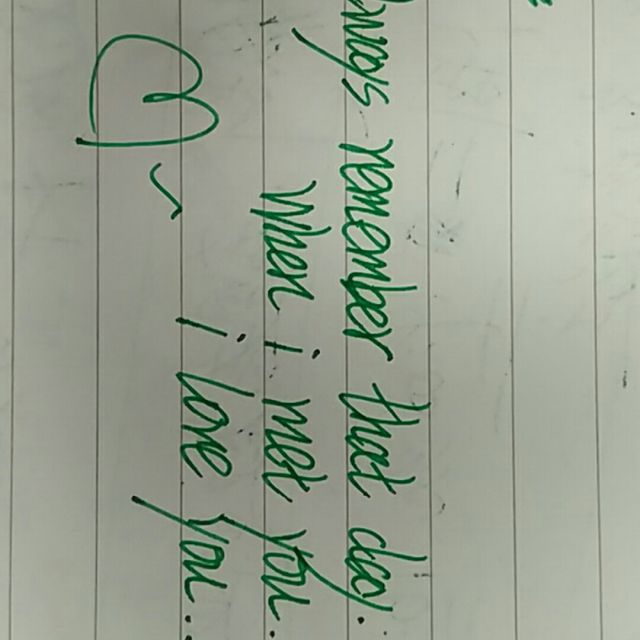 Always remember that day..
When i met you..
i love you...